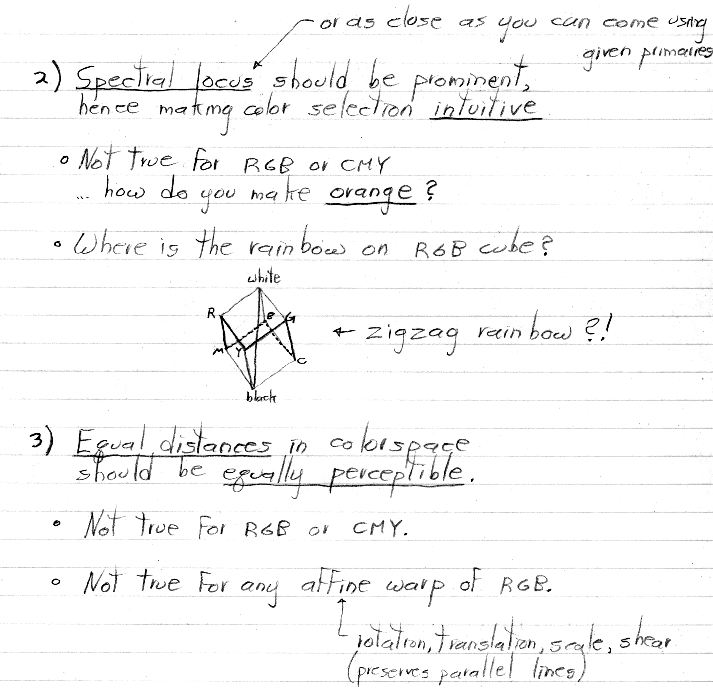 or as close as you can come using
given primaries
2) Spectral locus should be prominent,
hence making color selection intuitive
• Not true for RGB or CMY
... how do you make orange?
• Where is the rainbow on RGB cube?
white
R B G
M Y C
black
← zigzag rainbow?!
3) Equal distances in colorspace
should be equally perceptible.
• Not true for RGB or CMY.
• Not true for any affine warp of RGB.
rotation, translation, scale, shear
(preserves parallel lines)